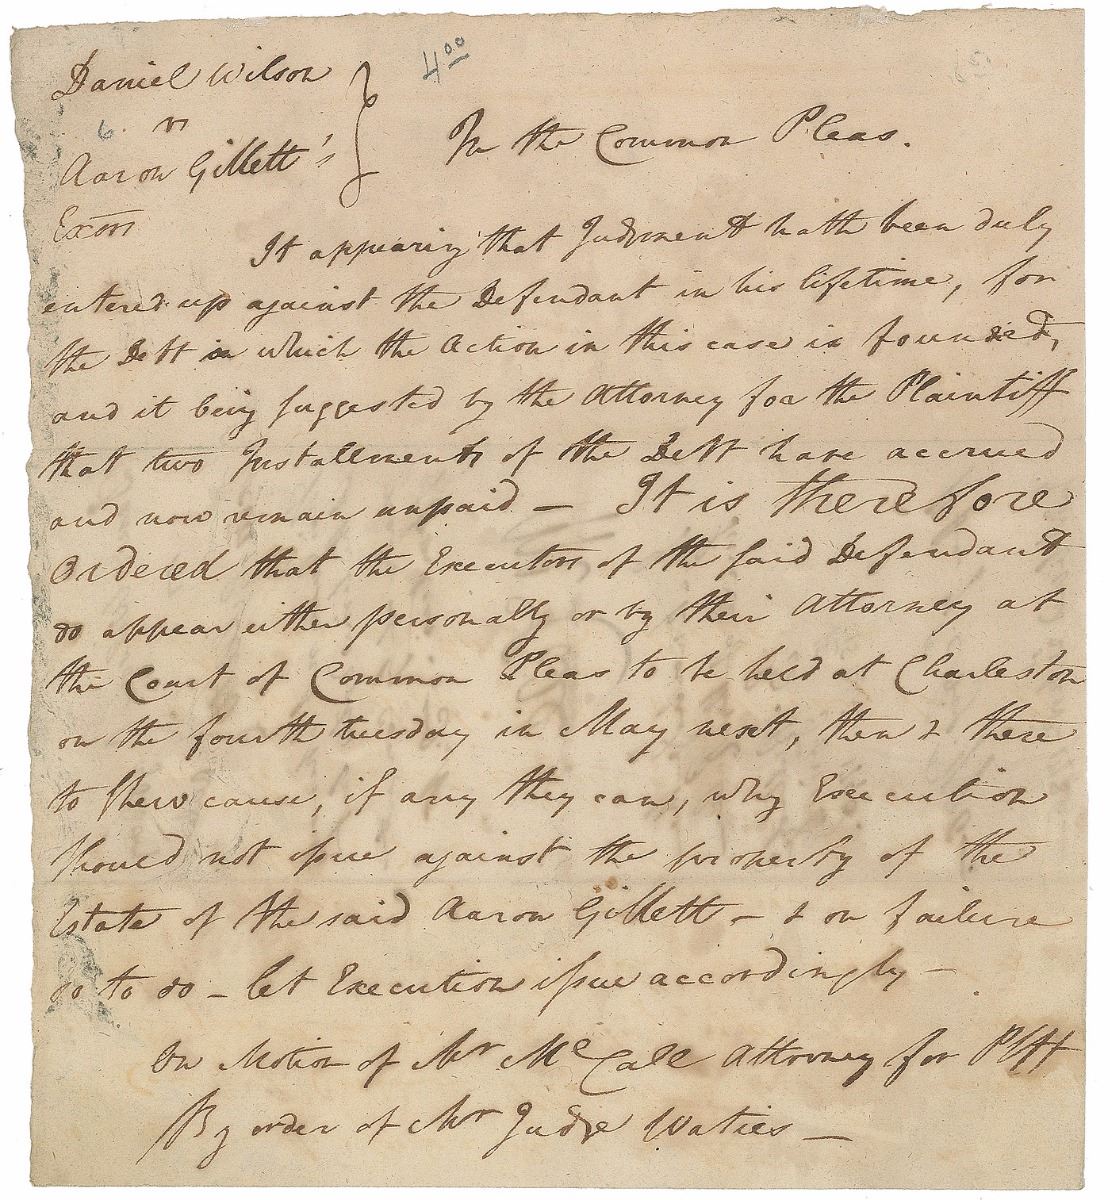 Daniel Wilson
4 00
vs
In the Common Pleas.
Aaron Gillett's
Exors
It appearing that Judgment hath been duly
entered up against the Defendant in his lifetime, for
the Debt on which the Action in this case is founded,
and it being suggested by the Attorney for the Plaintiff
that two Installments of the Debt have accrued
and now remain unpaid – It is therefore
Ordered that the Executors of the said Defendant
do appear either personally or by their Attorney at
the Court of Common Pleas to be held at Charleston
on the fourth tuesday in May next, then & there
to shew cause, if any they can, why Execution
should not issue against the property of the
Estate of the said Aaron Gillett – & on failure
so to do – let Execution issue accordingly –
On Motion of Mr McCall Attorney for Plff
By order of Mr Judge Waties –